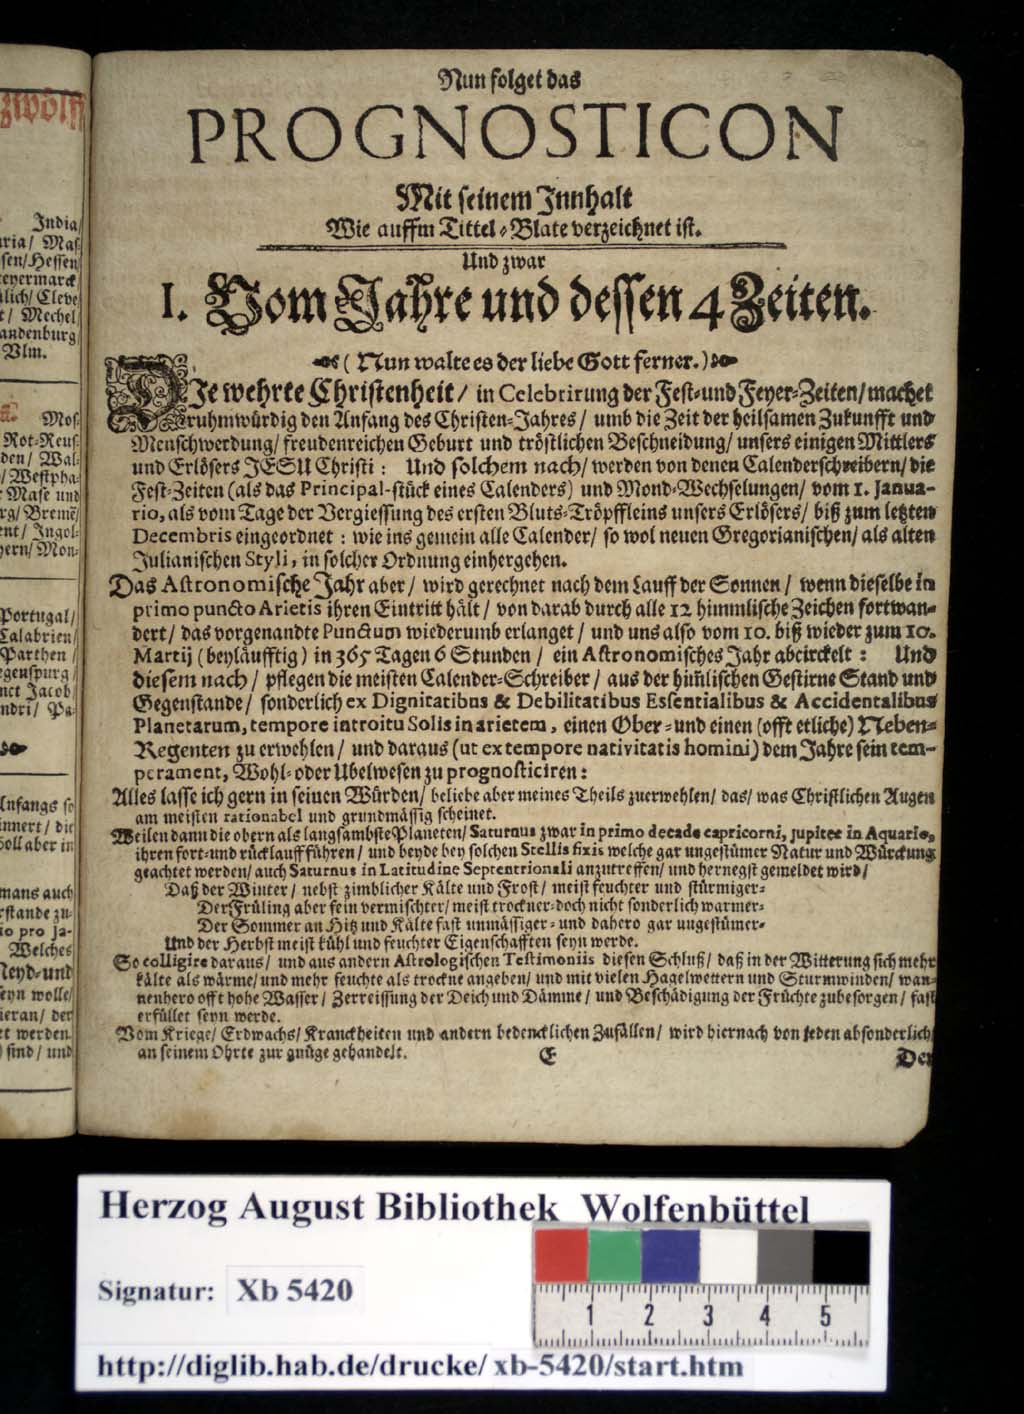 zwölff
India/
ria/ Mas-
sen/Hessen/
eyermarck/
lich/ Cleve/
t/ Mechel/
andenburg/
Vlm.
Mos-
Rot-Reus-
den/ Wal-
/ Westpha-
Mase und
rg/ Breme/
ent/ Ingol-
yern/ Mon-
Portugal/
Calabrien/
Parthen/
genspurg/
nct Jacob/
ndri/ Pa-
Anfangs so
innert/ die
voll aber in
mans auch
rstande zu-
io pro ja-
Welches
Neyd- und
seyn wolle/
ieran/ der
tt werden.
sind/ und
Nun folget das
PROGNOSTICON
Mit seinem Innhalt
Wie auffm Tittel-Blate verzeichnet ist.
Und zwar
I. Vom Jahre und dessen 4 Zeiten.
(Nun walte es der liebe Gott ferner.)
DIe wehrte Christenheit/ in Celebrirung der Fest- und Feyer-Zeiten/ machet
ruhmwürdig den Anfang des Christen-Jahres/ umb die Zeit der heilsamen Zukunfft und
Menschwerdung/ freudenreichen Geburt und tröstlichen Beschneidung/ unsers einigen Mittlers
und Erlösers JESU Christi: Und solchem nach/ werden von denen Calenderschreibern/ die
Fest-Zeiten (als das Principal-stück eines Calenders) und Mond-Wechselungen/ vom 1. Janua-
rio, als vom Tage der Vergiessung des ersten Bluts-Tröpffleins unsers Erlösers/ biß zum letzten
Decembris eingeordnet: wie ins gemein alle Calender/ so wol neuen Gregorianischen/ als alten
Julianischen Styli, in solcher Ordnung einhergehen.
Das Astronomische Jahr aber/ wird gerechnet nach dem Lauff der Sonnen/ wenn dieselbe in
primo puncto Arietis ihren Eintritt hält/ von darab durch alle 12 himmlische Zeichen fortwan-
dert/ das vorgenandte Punctum wiederumb erlanget/ und uns also vom 10. biß wieder zum 10.
Martij (beyläufftig) in 365 Tagen 6 Stunden/ ein Astronomisches Jahr abcirckelt: Und
diesem nach/ pflegen die meisten Calender-Schreiber/ aus der him̃lischen Gestirne Stand und
Gegenstande/ sonderlich ex Dignitatibus & Debilitatibus Essentialibus & Accidentalibus
Planetarum, tempore introitu Solis in arietem, einen Ober- und einen (offt etliche) Neben-
Regenten zu erwehlen/ und daraus (ut ex tempore nativitatis homini) dem Jahre sein tem-
perament, Wohl- oder Ubelwesen zu prognosticiren:
Alles lasse ich gern in seinen Würden/ beliebe aber meines Theils zuerwehlen/ das/ was Christlichen Augen
am meisten rationabel und grundmässig scheinet.
Weilen dann die obern als langsambste Planeten/ Saturnus zwar in primo decade capricorni, jupiter in Aquario,
ihren fort- und rücklauff führen/ und beyde bey solchen Stellis fixis welche gar ungestümer Natur und Würckung
geachtet werden/ auch Saturnus in Latitudine Septentrionali anzutreffen/ und hernegst gemeldet wird/
Daß der Winter/ nebst zimblicher Kälte und Frost/ meist feuchter und stürmiger-
Der Früling aber fein vermischter/ meist trockner- doch nicht sonderlich warmer-
Der Sommer an Hitz und Kälte fast unmässiger- und dahero gar ungestümer-
Und der Herbst meist kühl und feuchter Eigenschafften seyn werde.
So colligire daraus/ und aus andern Astrologischen Testimoniis diesen Schluß/ daß in der Witterung sich mehr
kälte als wärme/ und mehr feuchte als trockne angeben/ und mit vielen Hagelwettern und Sturmwinden/ wan-
nenhero offt hohe Wasser/ Zerreissung der Deich und Dämme/ und Beschädigung der Früchte zubesorgen/ fast
erfüllet seyn werde.
Vom Kriege/ Erdwachs/ Kranckheiten und andern bedencklichen Zufällen/ wird hiernach von jeden absonderlich/
an seinem Ohrte zur gnüge gehandelt.
E
Der
Herzog August Bibliothek Wolfenbüttel
Signatur: Xb 5420
1 2 3 4 5
http://diglib.hab.de/drucke/xb-5420/start.htm